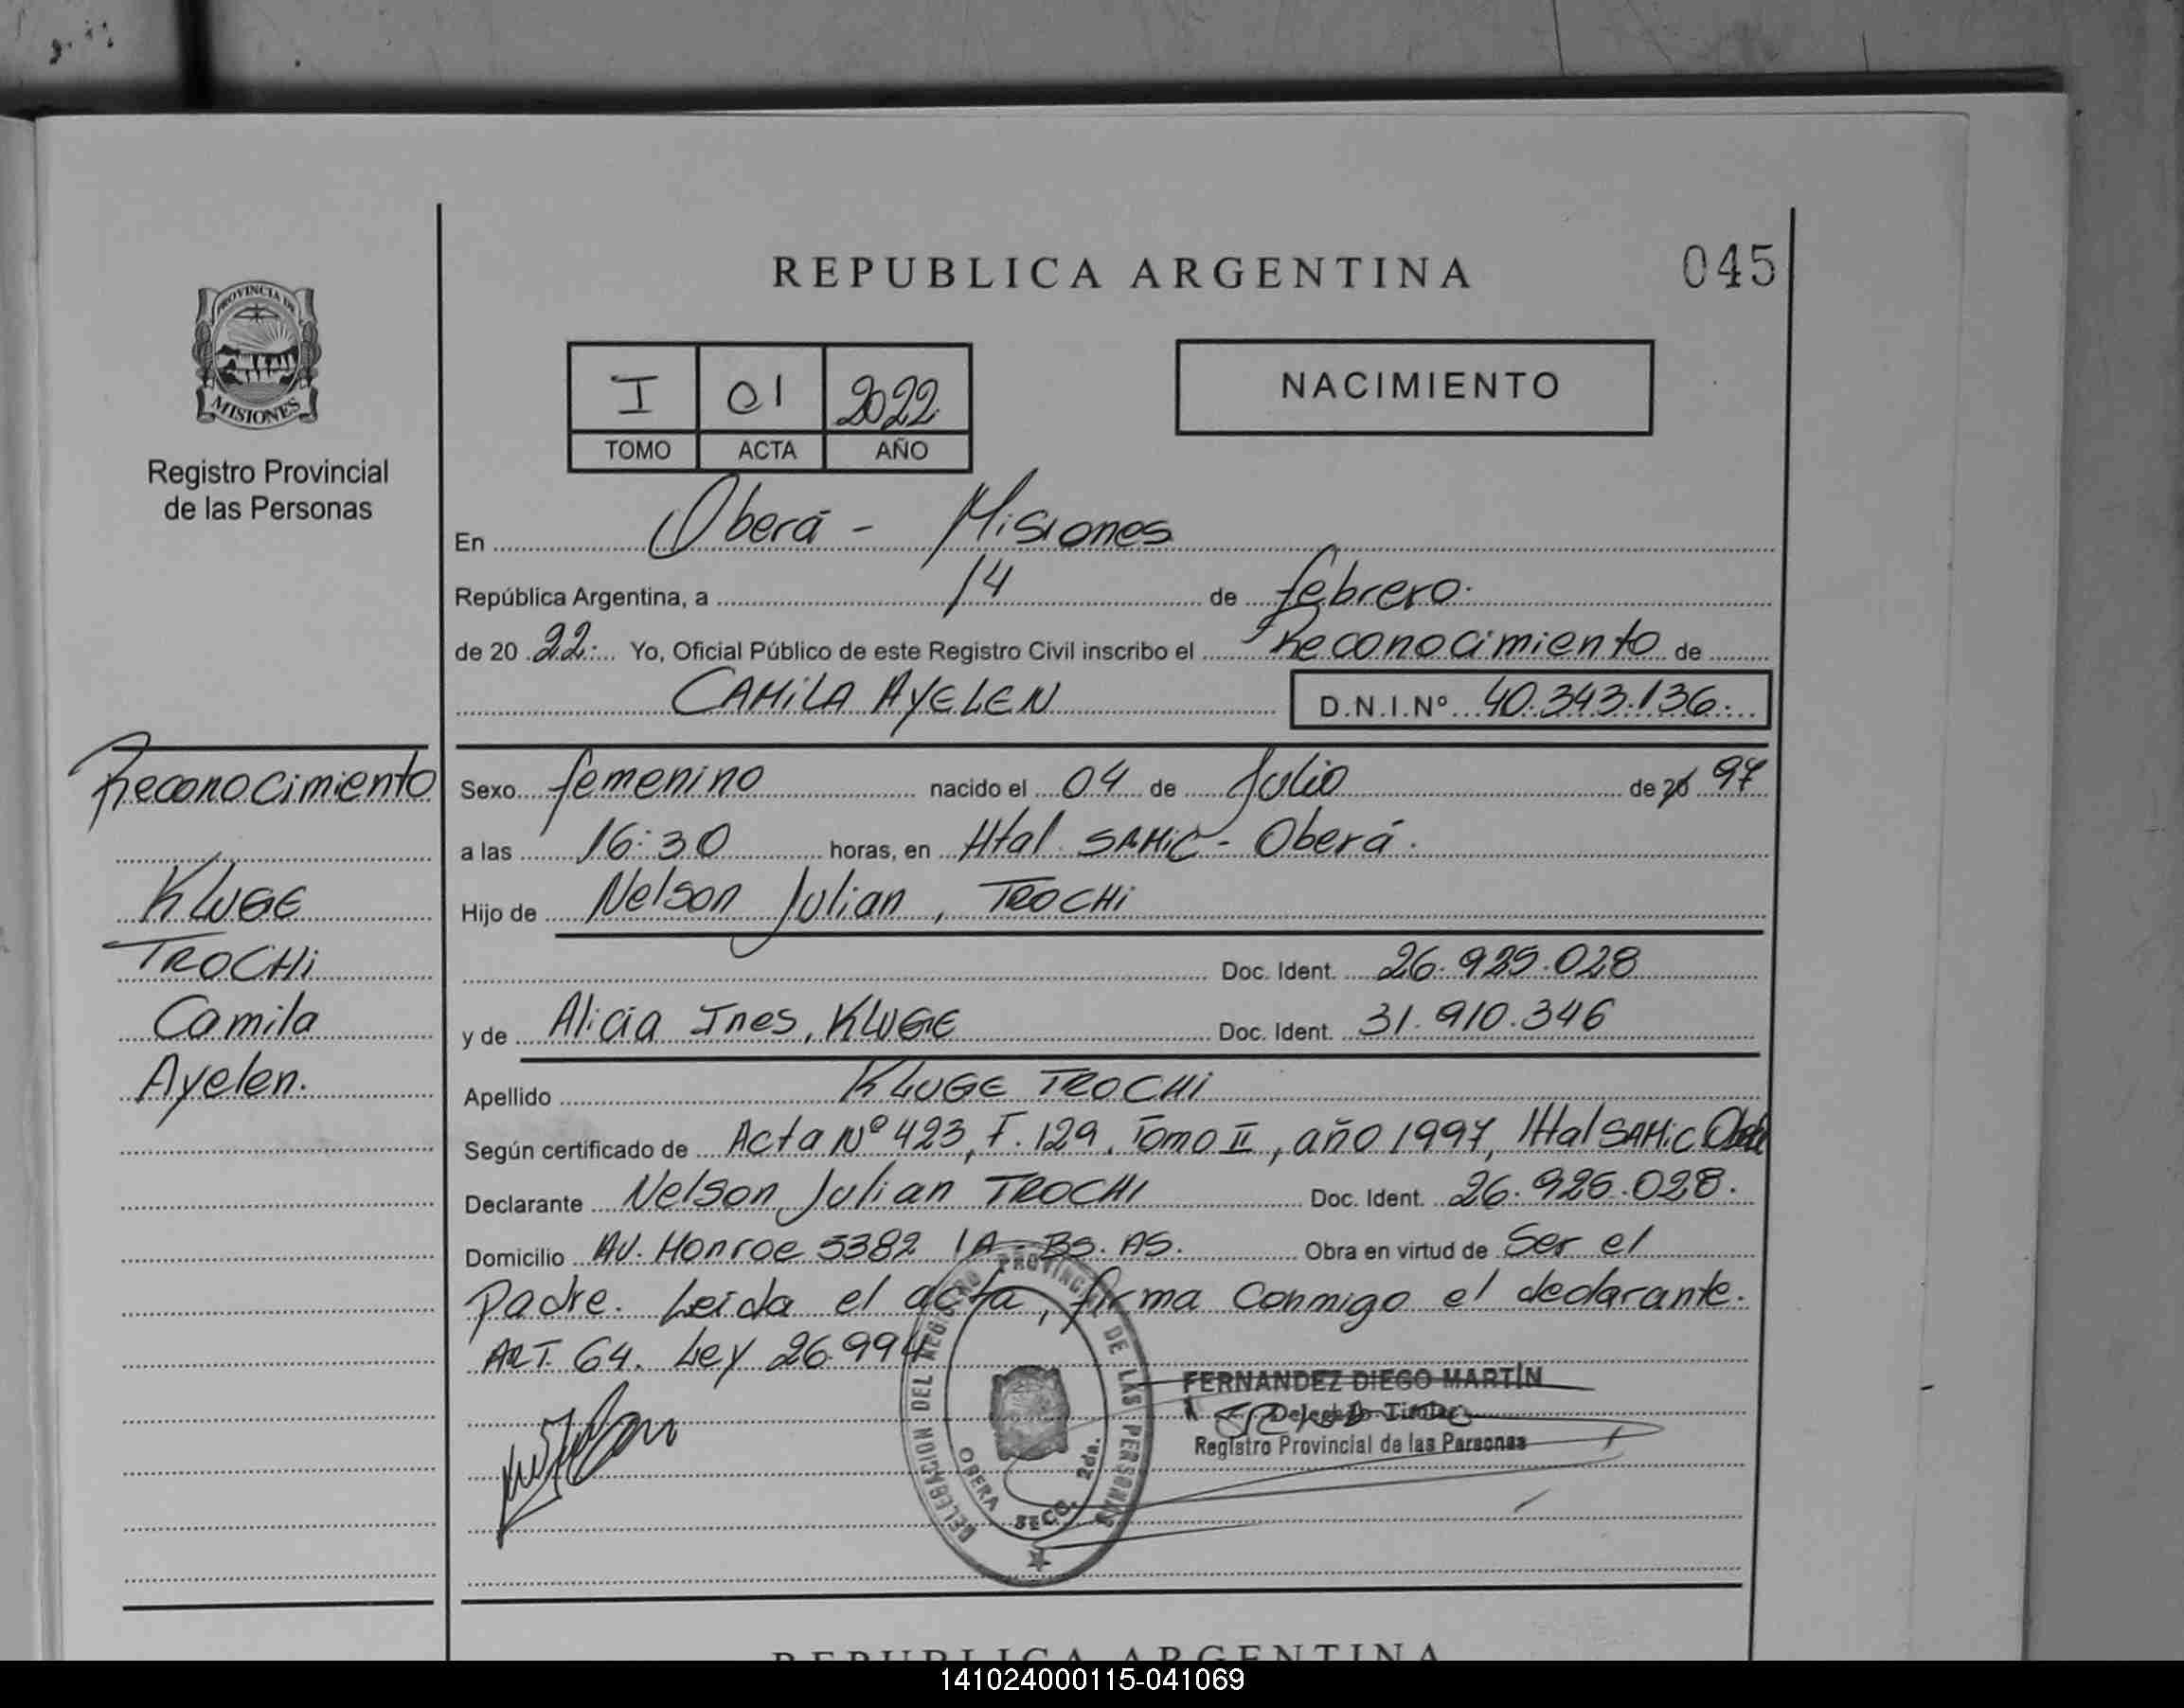 REPUBLICA ARGENTINA
045
PROVINCIA DE
MISIONES
Registro Provincial
de las Personas
I 01 2022
TOMO ACTA AÑO
NACIMIENTO
En Oberá - Misiones
República Argentina, a 14 de febrero.
de 20 22. Yo, Oficial Público de este Registro Civil inscribo el Reconocimiento de
CAMILA AYELEN D.N.I.Nº 40.343.136.
Reconocimiento
KLUGE
TROCHI
Camila
Ayelen.
Sexo femenino nacido el 04 de Julio de 20 97
a las 16:30 horas, en Htal SAMiC - Oberá.
Hijo de Nelson Julian, TROCHi
Doc. Ident. 26.925.028
y de Alicia Ines, KLUGE Doc. Ident. 31.910.346
Apellido KLUGE TROCHI
Según certificado de Acta Nº 423, F. 129, Tomo II, año 1997, Htal SAMiC
Declarante Nelson Julian TROCHI Doc. Ident. 26.925.028.
Domicilio AV. Monroe 5382 1A - BS. AS. Obra en virtud de Ser el
Padre. Leida el acta, firma conmigo el declarante.
ART. 64. Ley 26.994
DELEGACION DEL REGISTRO PROVINCIAL DE LAS PERSONAS
OBERA SECC. 2da.
FERNANDEZ DIEGO MARTÍN
Delegado Titular
Registro Provincial de las Personas
REPUBLICA ARGENTINA
141024000115-041069